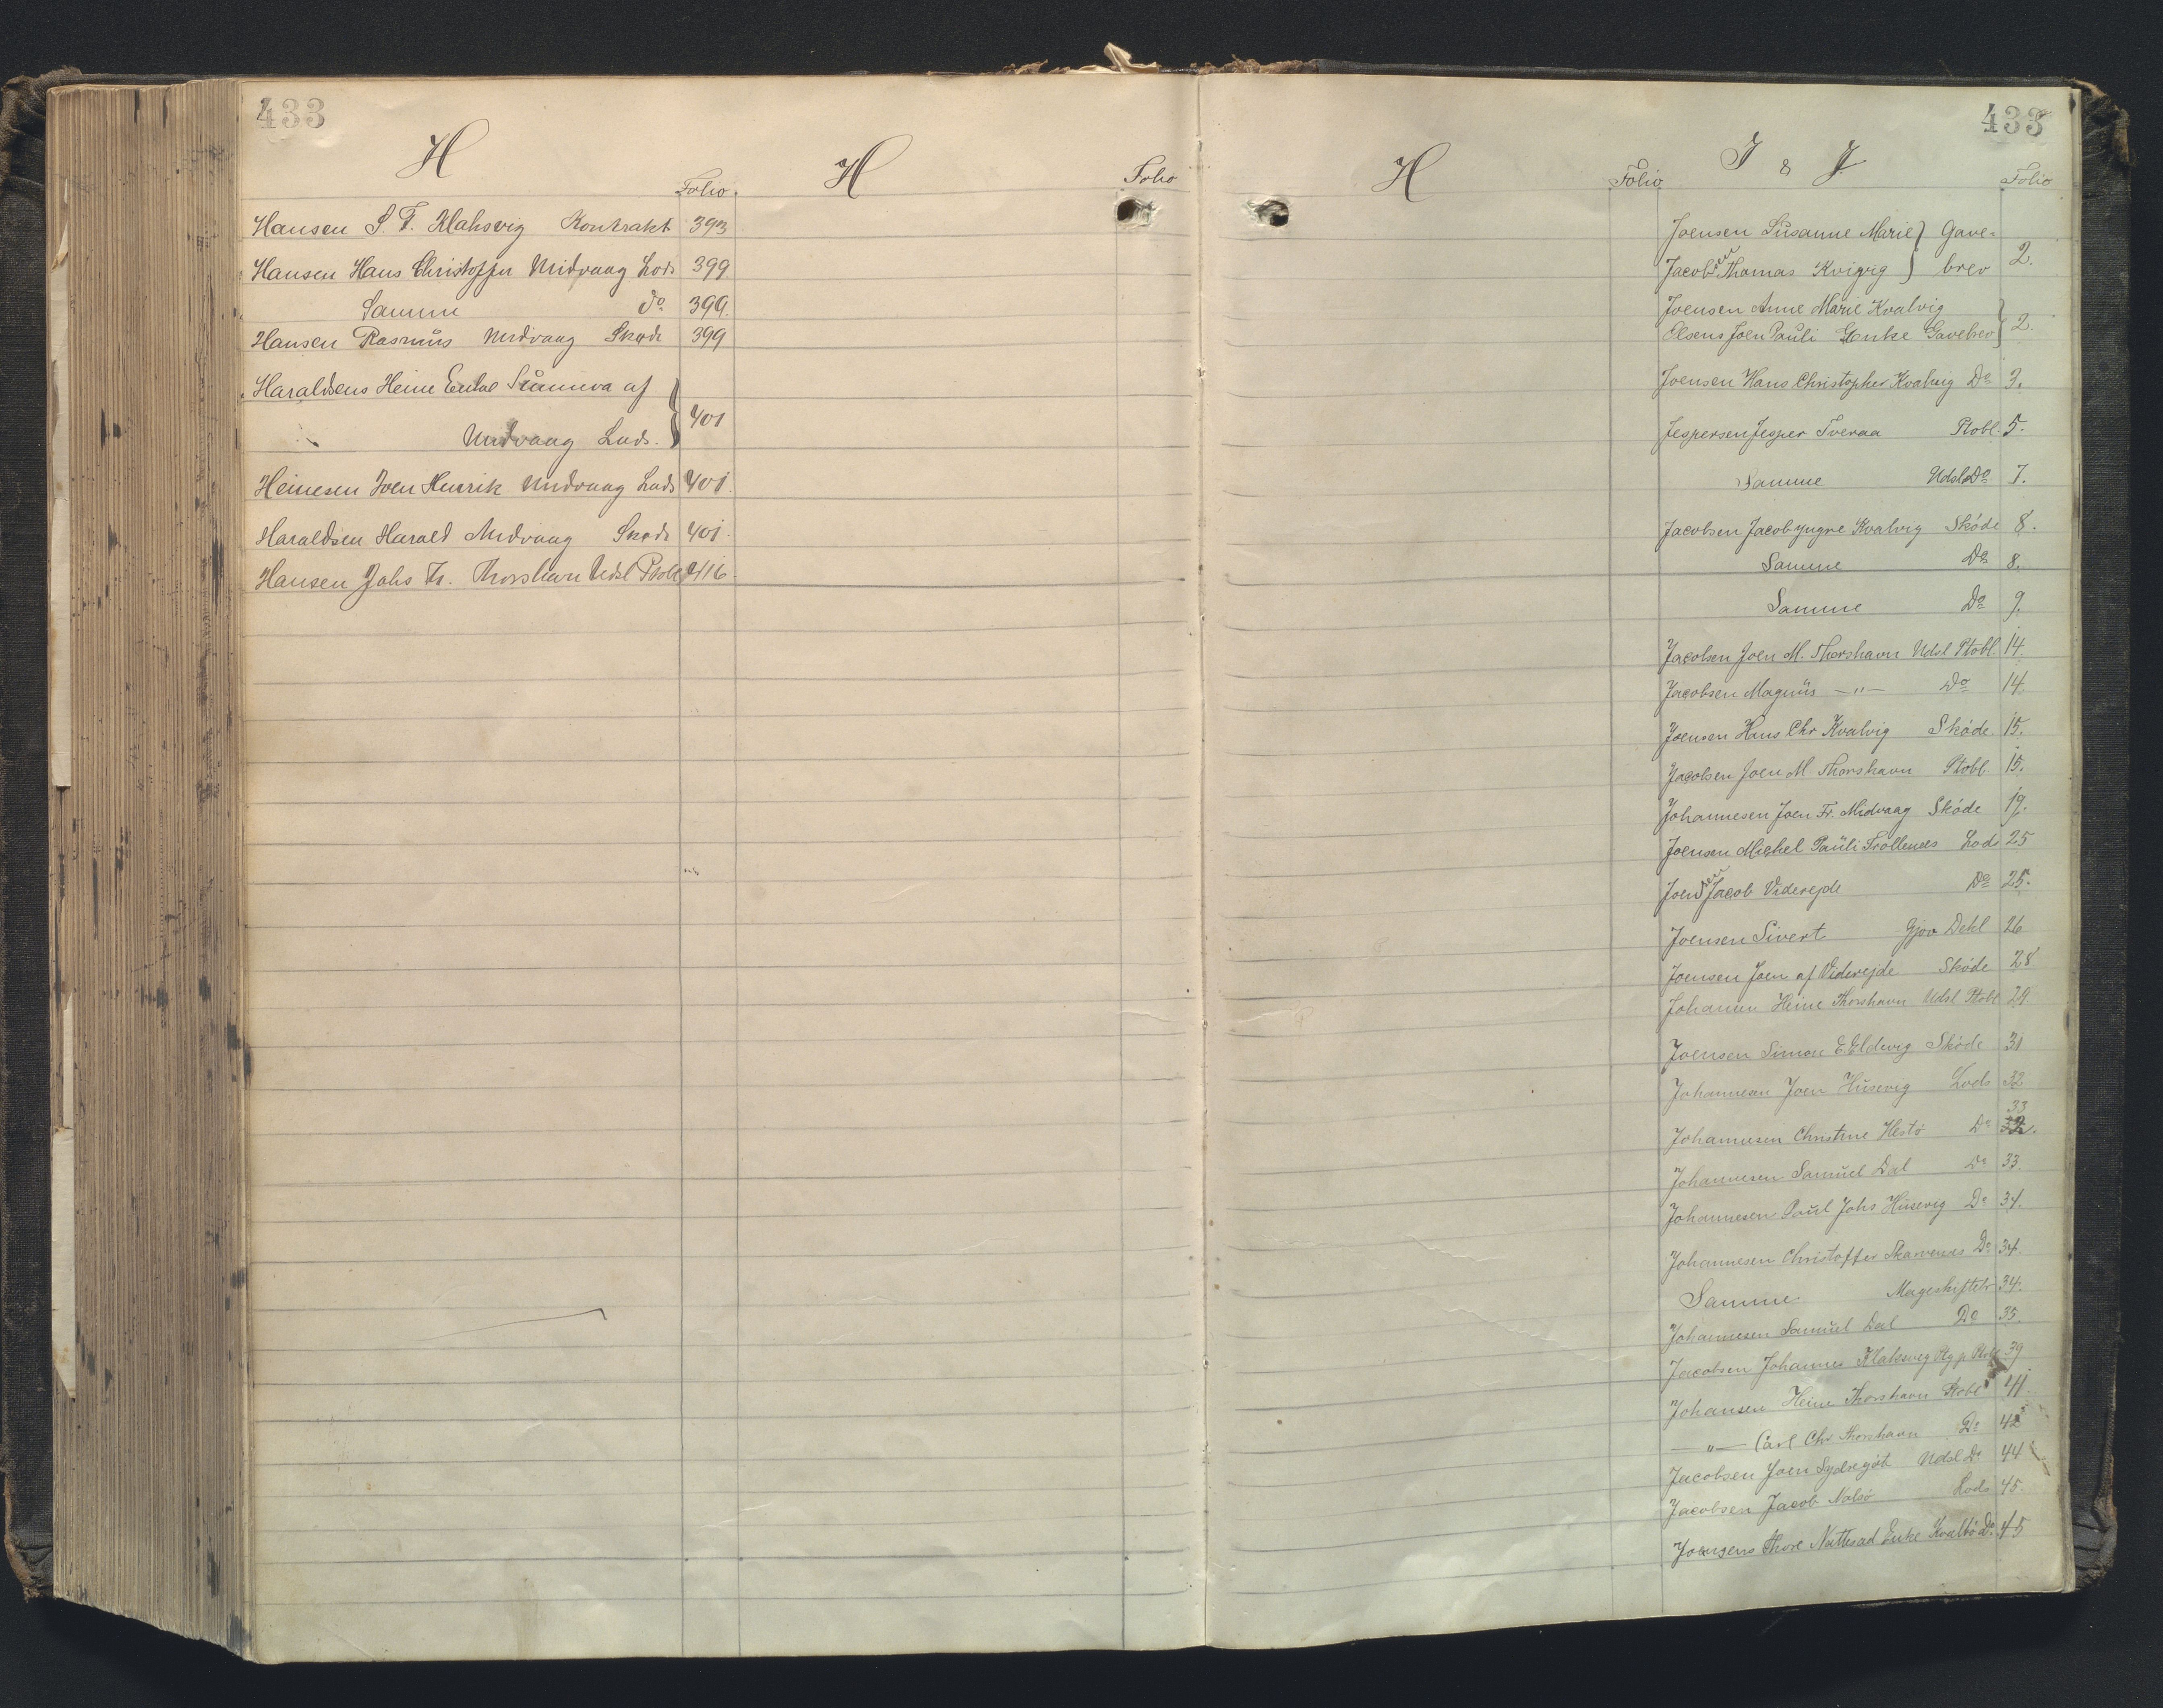 433
H
Folio.
Hansen S. F. Klaksvig Kontrakt 393
Hansen Hans Christoffer Midvaag Lods 399
Samme do 399.
Hansen Rasmus Midvaag Skøde 399
Haraldsens Heine Enke Sunneva af
Midvaag Lods. 401
Heinesen Joen Henrik Midvaag Lods 401.
Haraldsen Harald Midvaag Skøde 401.
Hansen Johs Fr. Thorshavn Udsl Ptobl 416
H
Folio
H
Folio
433
J & J
Folio
Joensen Susanne Marie } Gave=
Jacob Thomas Kvigvig } brev 2.
Joensen Anne Marie Kvalvig
Olsens Joen Pauli Enke Gavebrev } 2.
Joensen Hans Christopher Kvalvig Do 3.
Jespersen Jesper Tveraa Ptobl. 5.
Samme Udsl Do 7.
Jacobsen Jacob yngre Kvalvig Skóde 8.
Samme Do 8.
Samme Do 9.
Jacobsen Joen M. Thorshavn Udsl Ptobl. 14.
Jacobsen Magnus —"— Do 14.
Joensen Hans Chr Kvalvig Skóde. 15.
Jacobsen Joen M. Thorshavn Ptobl. 15.
Johannesen Joen Fr. Midvaag Skóde 19.
Joensen Michel Pauli Trollenes Lods 25
Joensen Jacob Viderejde Do 25.
Joensen Sivert Gjov Dekl 26
Joensen Joen af Viderejde Skóde 28
Johansen Heine Thorshavn Udsl Ptobl 29
Joensen Simon E. Eldevig Skóde 31
Johannesen Joen Húsevig Lods 32
33
Johannesen Christine Hestö Do 32.
Johannesen Samúel Dal Do 33.
Johannesen Poúl Johs Húsevig Do 34.
Johannesen Christoffer Skarvenes Do 34.
Samme. Mageskiftebr 34.
Johannesen Samúel Dal Do 35.
Jacobsen Johannes Klaksvig Ptobl 39
Johansen Heine Thorshavn Ptobl 41.
—"— Carl Chr Thorshavn Do 42
Jacobsen Joen Sydregöt Udsl Do 44
Jacobsen Jacob Nolsö Lods 45.
Joensens Thore Enke Kvalbö Do. 45